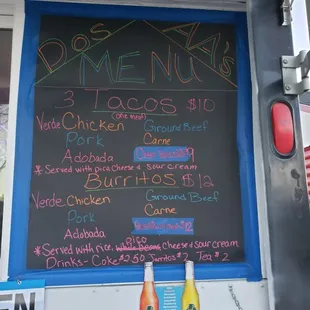 DOS AA'S
MENU
3 Tacos $10
(one meat)
Verde Chicken Ground Beef
Pork Carne
Adobada
* Served with pico, cheese & sour cream
Burritos $12
Verde Chicken Ground Beef
Pork Carne
Adobada
Pico
* Served with rice, whole beans, Cheese & sour cream
Drinks- Coke $2.50 Jarritos $2 Tea $2